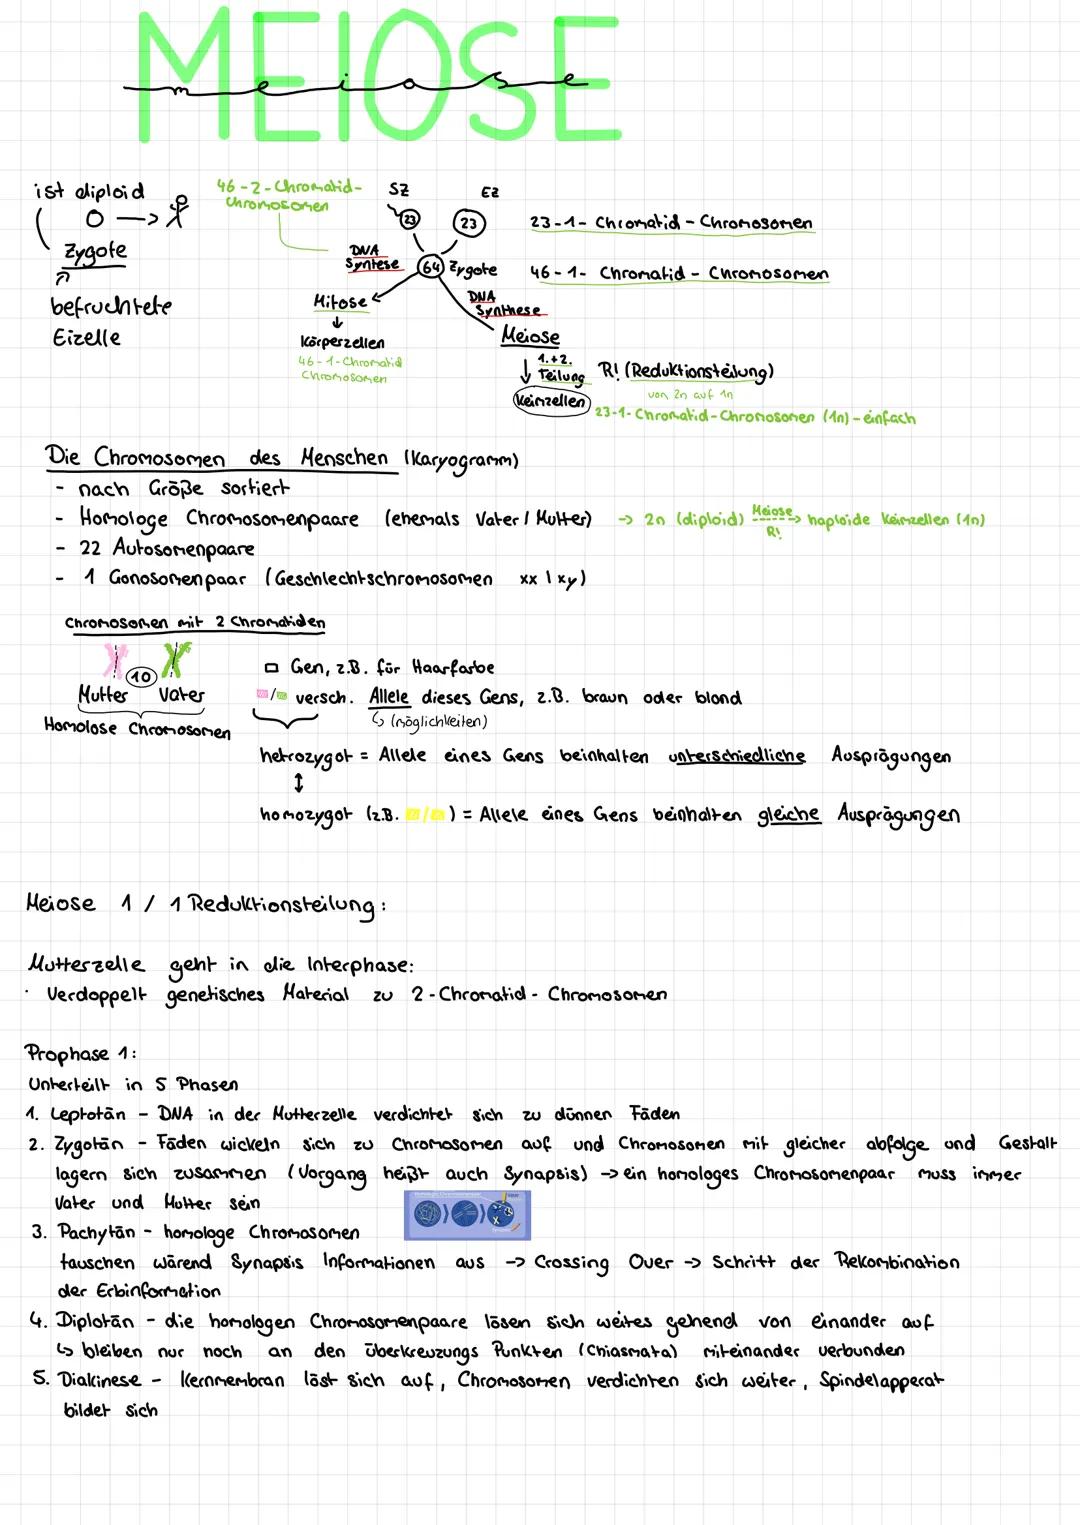 MEIOSE
meiose
ist diploid
Zygote
befruchtete
Eizelle
46-2-Chromatid-
Chromosomen
SZ
EZ
23
23
23-1-Chromatid-Chromosomen
DNA
Syntese
64 Zygote
46-1-Chromatid-Chromosomen
Mitose
DNA
Synthese
Körperzellen
46-1-Chromatid
Chromosomen
Meiose
1.+2.
Teilung
R! (Reduktionsteilung)
von 2n auf 1n
Keimzellen
23-1-Chromatid-Chromosomen (1n)-einfach
Die Chromosomen des Menschen (Karyogramm)
- nach Größe sortiert
- Homologe Chromosomenpaare (ehemals Vater/Mutter) → 2n (diploid) Meiose R! → haploide Keimzellen (1n)
- 22 Autosomenpaare
- 1 Gonosomenpaar (Geschlechtschromosomen xx | xy)
Chromosomen mit 2 Chromatiden
10
Mutter Vater
Homolose Chromosomen
Gen, z.B. für Haarfarbe
/ versch. Allele dieses Gens, z.B. braun oder blond
↳ (möglichkeiten)
hetrozygot = Allele eines Gens beinhalten unterschiedliche Ausprägungen
↕
homozygot (z.B. / ) = Allele eines Gens beinhalten gleiche Ausprägungen
Meiose 1 / 1 Reduktionsteilung:
Mutterzelle geht in die Interphase:
· Verdoppelt genetisches Material zu 2-Chromatid-Chromosomen
Prophase 1:
Unterteilt in 5 Phasen
1. Leptotän - DNA in der Mutterzelle verdichtet sich zu dünnen Fäden
2. Zygotän - Fäden wickeln sich zu Chromosomen auf und Chromosomen mit gleicher abfolge und Gestalt
lagern sich zusammen (Vorgang heißt auch Synapsis) → ein homologes Chromosomenpaar muss immer
Vater und Mutter sein
3. Pachytän - homologe Chromosomen
tauschen wärend Synapsis Informationen aus → Crossing Over → Schritt der Rekombination
der Erbinformation
4. Diplotän - die homologen Chromosomenpaare lösen sich weites gehend von einander auf
↳ bleiben nur noch an den überkreuzungs Punkten (Chiasmata) miteinander verbunden
5. Diakinese - Kernmembran löst sich auf, Chromosomen verdichten sich weiter, Spindelapperat
bildet sich